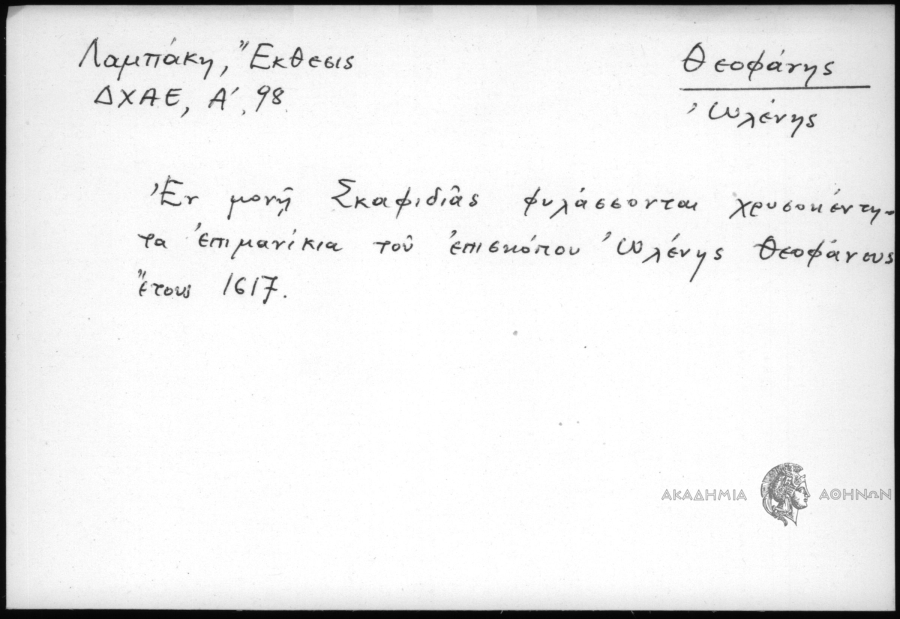 Λαμπάκη, Ἔκθεσις
ΔΧΑΕ, Α΄, 98
Θεοφάνης
Ὠλένης
Ἐν μονῇ Σκαφιδιᾶς φυλάσσονται χρυσοκέντη-
τα ἐπιμανίκια τοῦ ἐπισκόπου Ὠλένης Θεοφάνους
ἔτους 1617.
ΑΚΑΔΗΜΙΑ ΑΘΗΝΩΝ